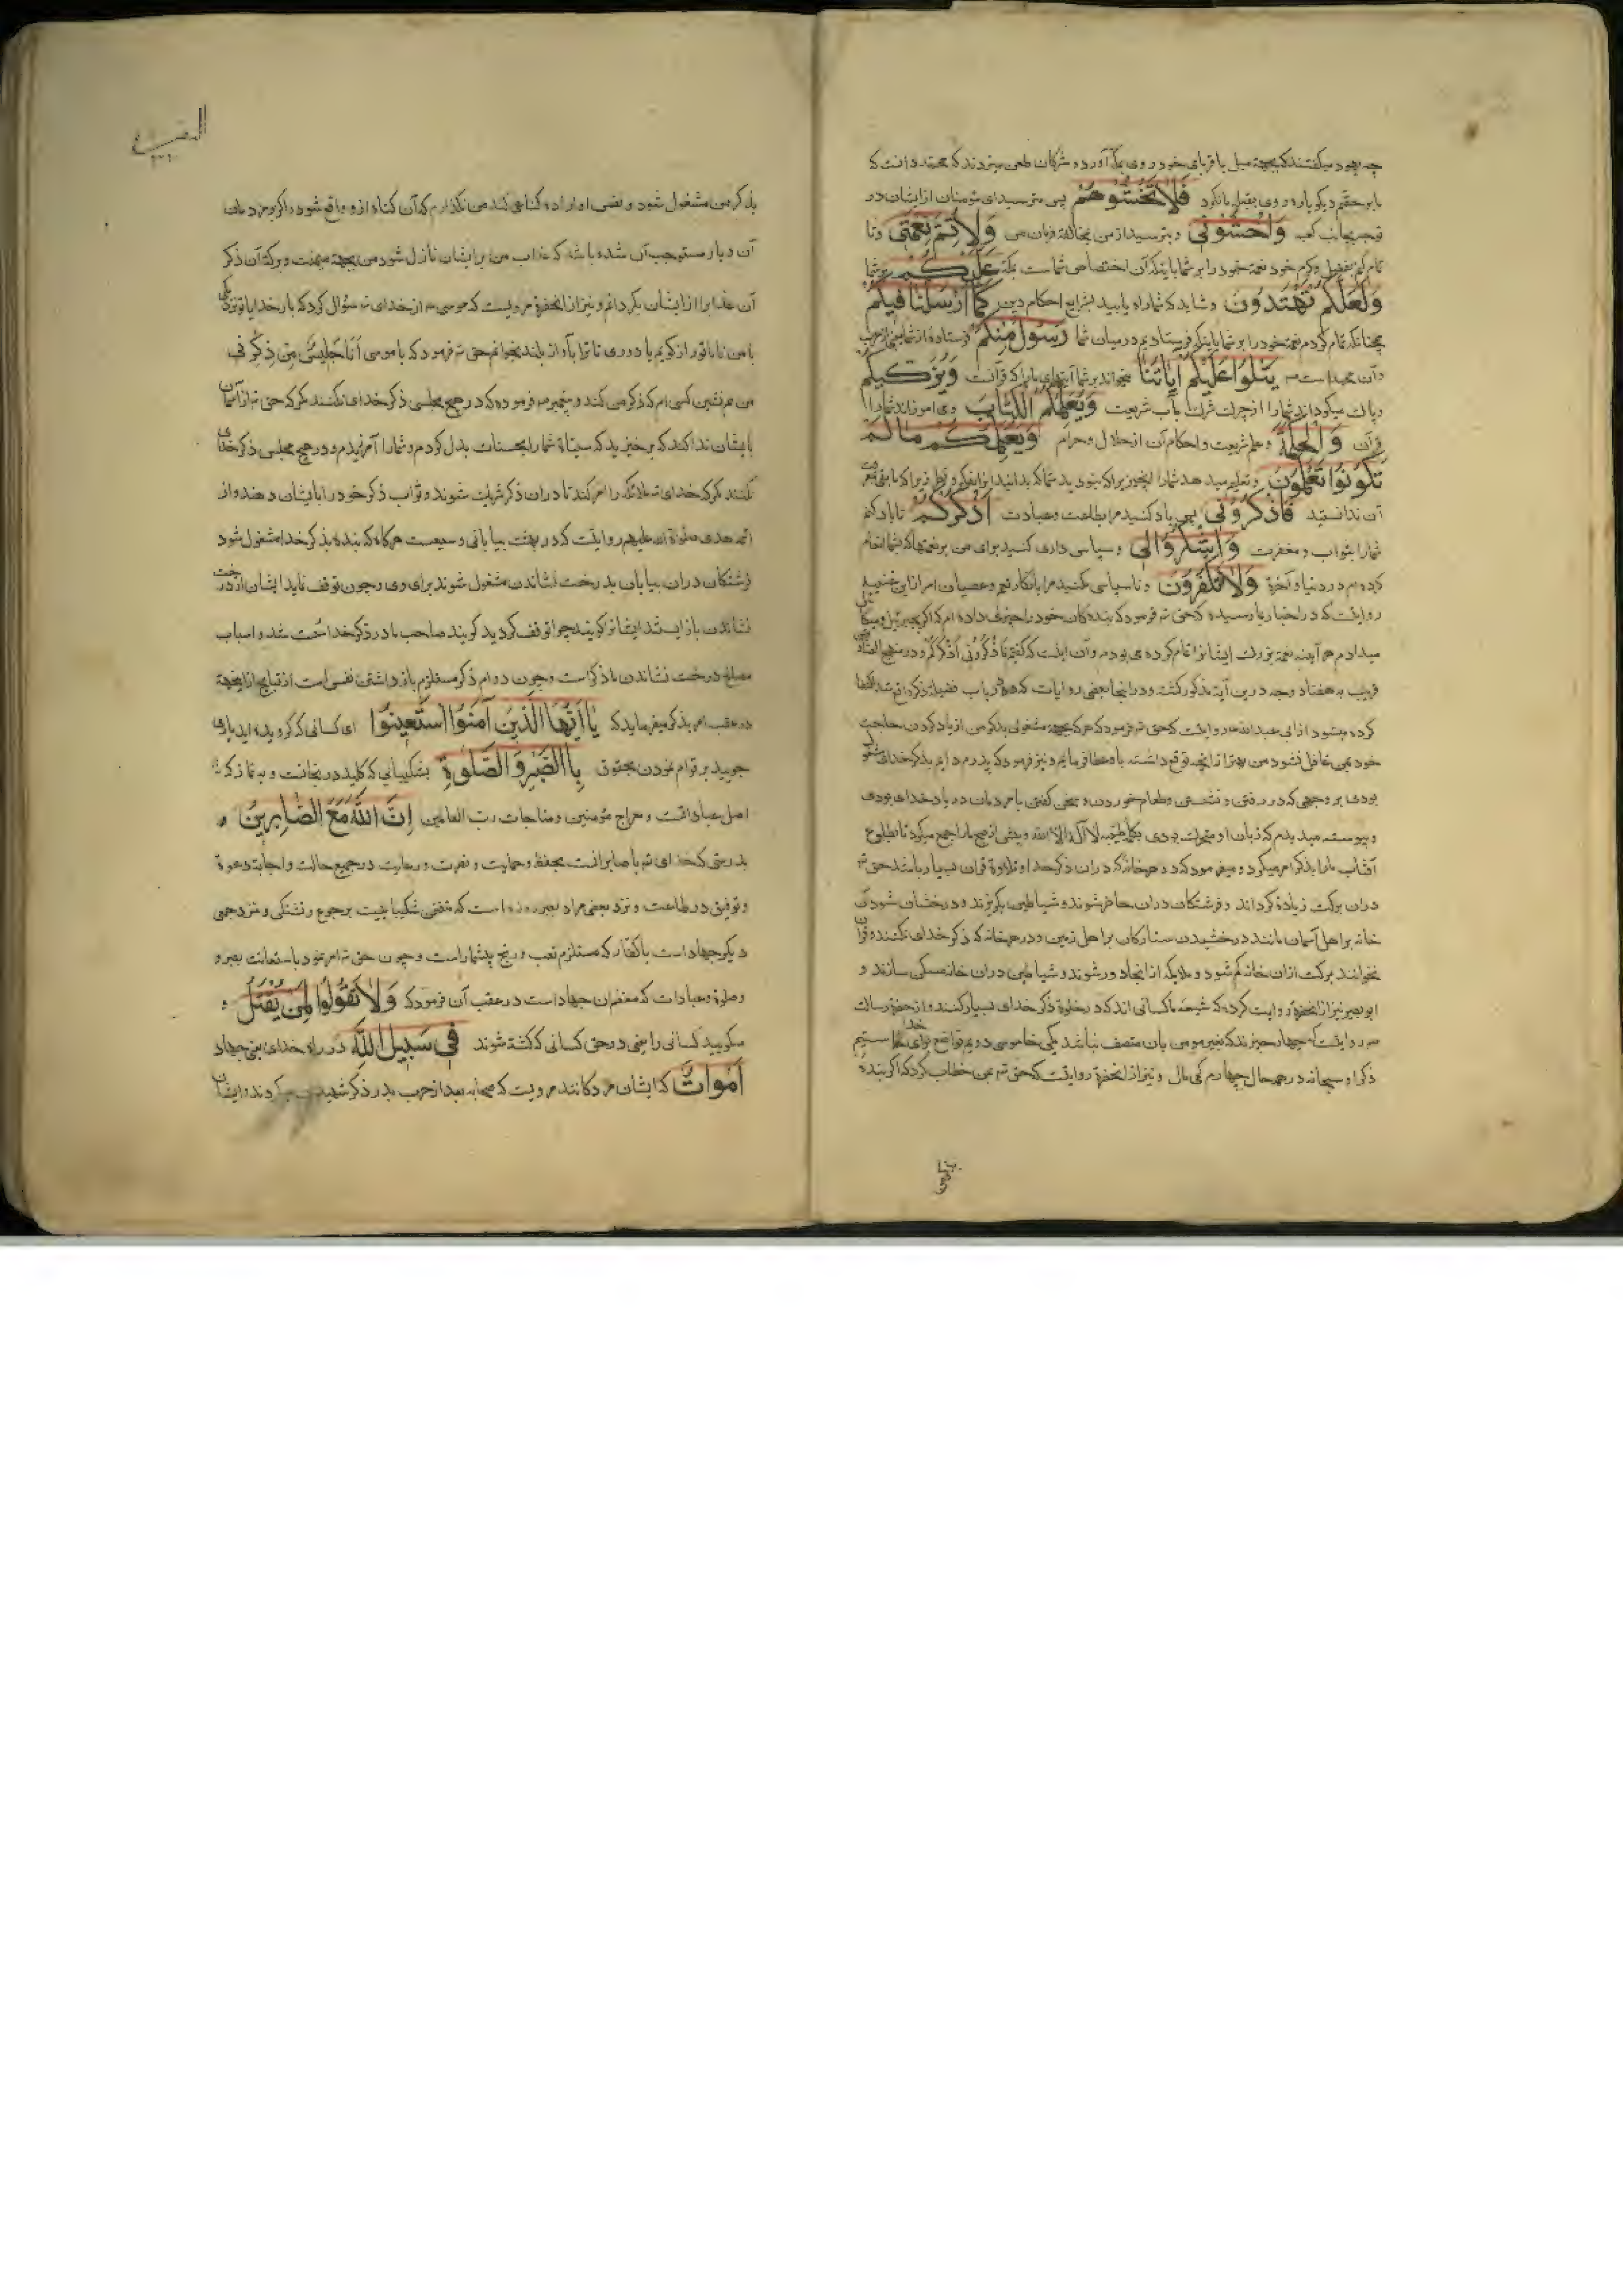 چه یهود میگفتند که بجهة میل باقربای خود روی بمکه آورد و مشرکان طعن میزدند که محمد دانست که
ما بر حقیم دیگر باره روی بقبله ما کرد فَلا تَخْشَوْهُمْ پس مترسید ای مؤمنان از ایشان در
توجه بجانب کعبه وَاخْشَوْنی و بترسید از من بمخالفة فرمان من وَلِاُتِمَّ نِعْمَتی و تا
تمام کنم بفضل و کرم خود نعمة خود را بر شما باینکه آن اختصاص شماست بمکه عَلَیْکُمْ بر شما
وَلَعَلَّکُمْ تَهْتَدُونَ و شاید که شما راه یابید بشرایع احکام دین کَما اَرْسَلْنا فیکُمْ
چنانکه تمام کردم نعمة خود را بر شما باینکه فرستادیم در میان شما رَسُولاً مِنْکُمْ فرستاده از شما یعنی از عرب
و آن محمد است ص یَتْلُوا عَلَیْکُمْ ایاتِنا میخواند بر شما آیتهای ما را که قرآنست وَیُزَکّیکُمْ
و پاک میگرداند شما را از چرک شرک بآب شریعت وَیُعَلِّمُکُمُ الْکِتابَ و می‌آموزاند شما را
قرآن وَالْحِکْمَةَ و علم شریعت و احکام آن از حلال و حرام وَیُعَلِّمُکُمْ ما لَمْ
تَکُونُوا تَعْلَمُونَ و تعلیم میدهد شما را آنچیزی را که نبودید شما که بدانید آنرا بفکر و نظر زیرا که
آن ندانستید فَاذْکُرُونی پس یاد کنید مرا بطاعت و عبادت اَذْکُرْکُمْ تا یاد کنم
شما را بثواب و مغفرت وَاشْکُرُوا لی و سپاس داری کنید برای من بر نعمتها که بشما انعام
کرده‌ام در دنیا و آخرة وَلا تَکْفُرُونَ و ناسپاسی مکنید مرا بانکار نعم و عصیان امر
روایتست که در اخبار بما رسیده که حق تع فرمود که بنده‌گان خود را چیزی داده‌ام که اگر جبرئیل و میکائیل
میدادم هر آینه نعمة بزرگ ایشانرا تمام کرده می‌بودم و آن اینست که گفتم فَاذْکُرُونی اَذْکُرْکُمْ و در منهج
قریب به هفتاد وجه درین آیة مذکور گشته و در اینجا بعضی روایات که در باب فضیلة ذکر واقع شده اکتفا
کرده میشود از ابی عبد الله ع روایتست که حق تع فرمود که هر که بجهة مشغولی بذکر من از یاد کردن حاجت
خود بمن غافل نشود من بهتر از آنچه توقع داشته باو عطا فرمایم و نیز فرمود که پدرم دایم بذکر خدای مشغول
بودی بر وجهی که در رفتن و نشستن و طعام خوردن و سخن گفتن با مردمان در یاد خدای بودی
و پیوسته میدیدم که زبان او متحرک بودی بکلمه طیبه لا اله الا الله و بعد از صبح ما را جمع میکرد تا طلوع
آفتاب ما را بذکر امر میکرد و میفرمود که در هر خانه که در آن ذکر خدا و تلاوة قرآن بسیار باشد حق تع
در آن برکت زیاده گرداند و فرشتگان در آن حاضر شوند و شیاطین بگریزند و درخشان شود آن
خانه بر اهل آسمان مانند درخشیدن ستارگان بر اهل زمین و در هر خانه که ذکر خدای نکنند و قرآن
نخوانند برکت از آن خانه کم شود و ملایکه از اینجا دور شوند و شیاطین در آن خانه مسکن سازند و
ابو بصیر نیز از آنحضرة روایت کرده که شیعه ما کسانی‌اند که در خلوة ذکر خدای بسیار کنند و از حضرة رسالت
ص روایتست که چهار چیزند که بغیر مومن بآن متصف نباشد یکی خاموشی دویم تواضع برای خدا سیم
ذکر او سبحانه در همه حال چهارم کمی مال و نیز از آنحضرة روایتست که حق تع بمن خطاب کرد که اگر بنده
بذکر من
البقرة
بذکر من مشغول شود و نفس او اراده گناهی کند من نگذارم که آن گناه ازو واقع شود و اگر مردمان
آن دیار مستوجب آن شده باشند که عذاب من بر ایشان نازل شود من بجهة میمنت و برکة آن ذکر
آن عذاب را از ایشان بگردانم و نیز از آنحضرة مرویست که موسی ع از خدای تع سؤال کرد که بار خدایا تو نزدیکی
با من تا با تو راز گویم یا دوری تا ترا بآواز بلند بخوانم حق تع فرمود که یا موسی اَنَا جَلیسُ مَنْ ذَکَرَنی
من همنشین کسی‌ام که ذکر من کند و پیغمبر ص فرموده که در هیچ مجلسی ذکر خدای نکنند مگر که حق تع از آسمان
بایشان ندا کند که برخیزید که سیئات شما را بحسنات بدل کردم و شما را آمرزیدم و در هیچ مجلسی ذکر خدای
نکنند مگر که خدای تع ملائکه را امر کند تا در آن ذکر شریک شوند و ثواب ذکر خود را بایشان دهند و از
ائمه هدی صلوات الله علیهم روایتست که در بهشت بیابانی وسیعست هر گاه که بنده بذکر خدا مشغول شود
فرشتگان در آن بیابان بدرخت نشاندن مشغول شوند برای وی و چون توقف نماید ایشان از درخت
نشاندن باز ایستند ایشانرا گویند چرا توقف کردید گویند صاحب ما در ذکر خدا سست شد و اسباب
مصالح درخت نشاندن ما ذکر است و چون دوام ذکر مستلزم باز داشتن نفس است از قبایح از اینجهة
در عقب امر بذکر میفرماید که یا اَیُّهَا الَّذینَ آمَنُوا اسْتَعینُوا ای کسانی که گرویده‌اید یاری
جویید بر قوام نمودن بحقوق بِالصَّبْرِ وَالصَّلوةِ بشکیبائی که کلید در نجاتست و به نماز که
اصل عباداتست و معراج مؤمنین و مناجات رب العالمین اِنَّ اللّهَ مَعَ الصّابِرینَ
بدرستی که خدای تع با صابرانست بحفظ و حمایت و نصرت و رعایت در جمیع حالت و اجابة دعوة
و توفیق در طاعت و نزد بعضی مراد بصبر روزه است که مقتضی شکیبائیست بر جوع و تشنگی و نزد جمعی
دیگر جهاد است با کفار که مستلزم تعب و رنج بیشمار است و چون حق تع امر نمود باستعانت بصبر و
و صلوة و عبادات که معظم آن جهاد است در عقب آن فرمود که وَلا تَقُولُوا لِمَنْ یُقْتَلُ
مگویید کسانی را یعنی در حق کسانی که کشته شوند فی سَبیلِ اللّهِ در راه خدای یعنی جهاد
اَمْواتٌ که ایشان مردگانند مرویست که صحابه بعد از حرب بدر ذکر شهیدان میکردند و ایشان